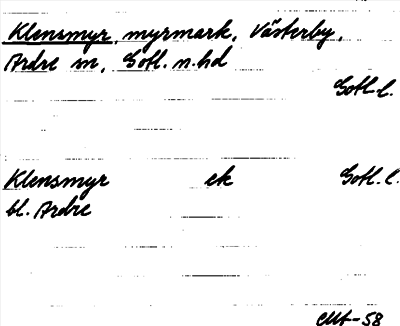 Klensmyr, myrmark, Västerby,
Ardre sn, Gotl. n. hd
Gotl. l.
Klensmyr ek Gotl. l.
bl. Ardre